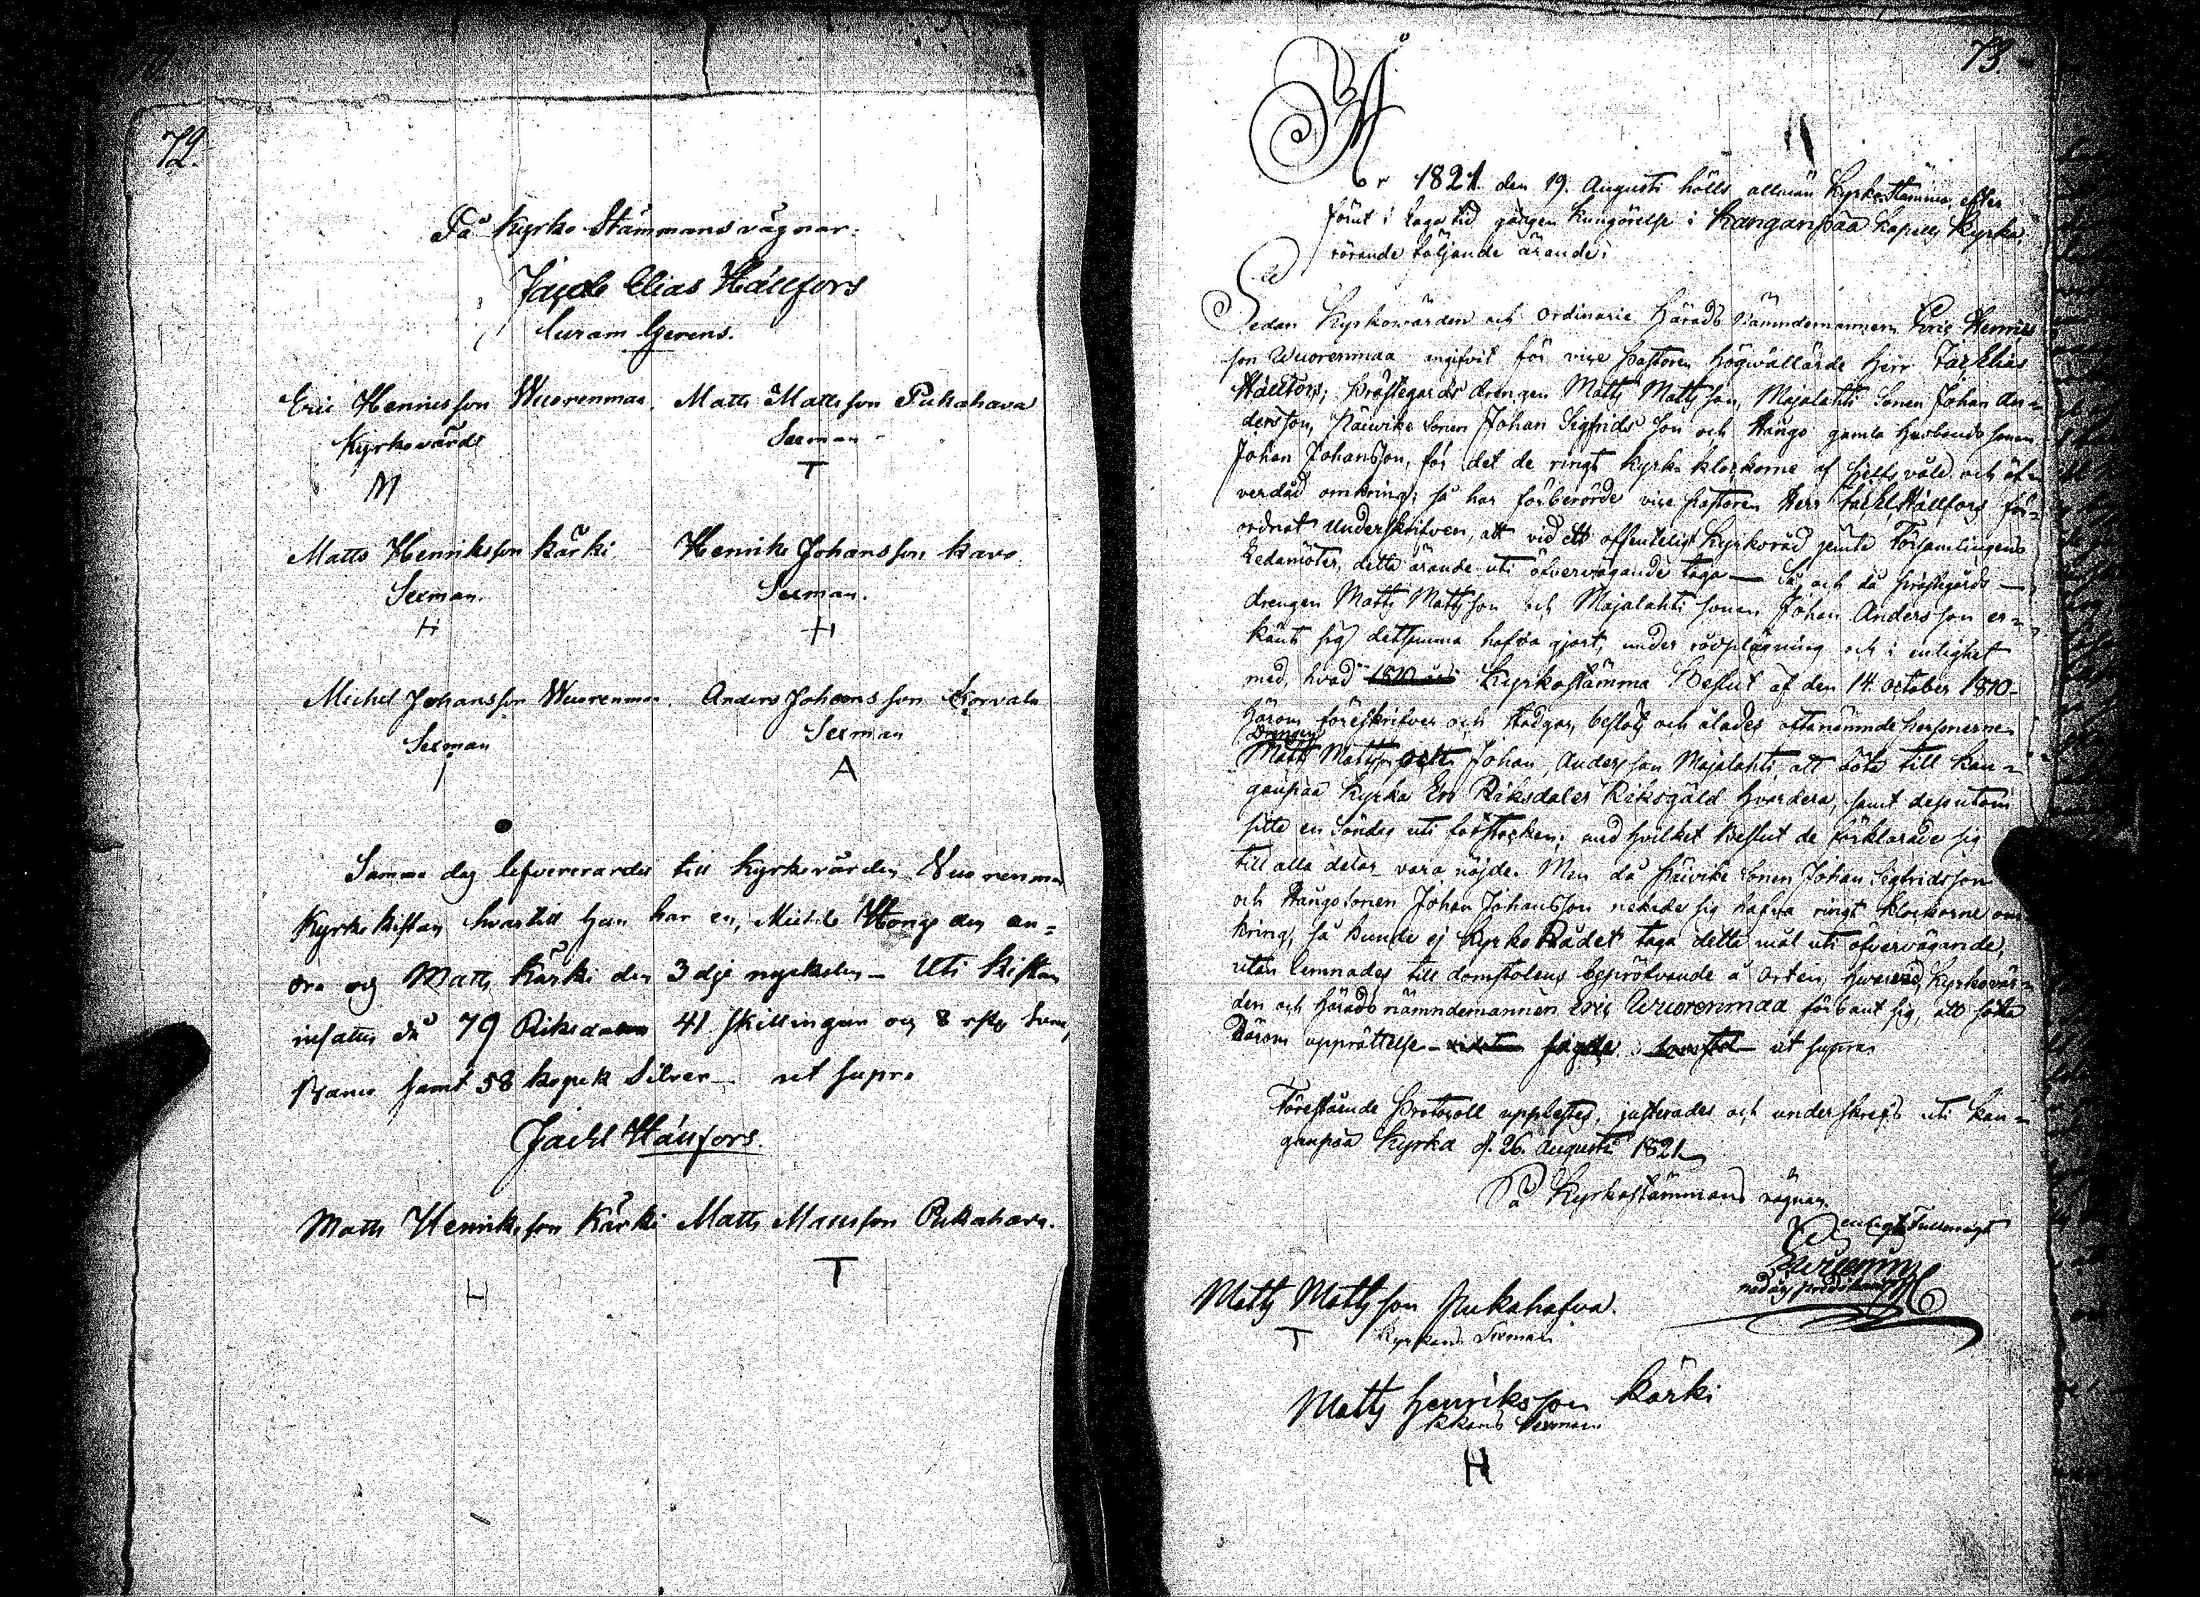 72.
På Kyrko Stämmans vägnar:
Jacob Elias Hällfors
Curam Gerens.
Eric Henricsson Wuorenmaa. Matts Mattsson Pukahava
Kyrkovärd Sexman
M T
Matts Henriksson Kärki Henrik Johansson Kavo
Sexman. Sexman.
H H
Michel Johansson Wuorenmaa. Anders Johansson Korvala
Sexman Sexman
A
Samma dag lefvererades till Kyrkovärden Wuorenmaa
Kyrkokistan, hvartill han har en, Michel Hongo den an-
dra och Matts Kärki den 3dje nyckelen – Uti Kistan
insattes då 79 Riksdaler 41 skillingar och 8 rst
Banco samt 58 kopek Silver – ut supra
Jac El Hällfors.
Matts Henriksson Kärki Matts Mattsson Pukahava.
H T
73.
År 1821 den 19. Augusti hölls allmän Kyrkostämma, efter
förut i laga tid gången kungörelse i Kanganpää Capells Kyrka,
rörande följande ärende:
Sedan Kyrkovärden och ordinarie Härads Nämndemannen Eric Henrics
son Wuorenmaa angifvit för vice Pastoren Högvällärde Herr Jac Elias
Hällfors, Prästegårds drengen Matts Mattsson, Majalahti Sonen Johan An-
dersson, Päivike Sonen Johan Sigfrids son och Hango gamla husbonds sonen
Johan Johansson, för det de ringt kyrko klockorne af sjelfsvåld och öf-
verdåd omkring; så har förberörde vice pastoren Herr Jac El. Hällfors för-
ordnat underskrifven, att vid ett offentligt Kyrkoråd jemte Församlingens
Ledamöter, detta ärende uti öfvervägande taga – Så och då prästegårds –
drengen Matts Mattsson och Majalahti sonen Johan Andersson er-
känt sig detsamma hafva gjort, under rådplägning och i enlighet
med, hvad Kyrkostämma Beslut af den 14. October 1810
härom föreskrifver och stadgar, beslöts och ålades oftanämnde personerne
Drengen
Matts Mattsson och Johan Andersson Majalahti att böta till Kan-
ganpää Kyrka En Riksdaler Riksgäld hvardera, samt dessutom
sitta en Söndag uti fotstocken; med hvilket beslut de förklarade sig
till alla delar vara nöjde. Men då Päivike Sonen Johan Sigfridsson
och Hango sonen Johan Johansson nekade sig hafva ringt klockorne om-
kring, så kunde ej Kyrko Rådet taga detta mål uti öfvervägande,
utan lemnades till domstolens bepröfvande å orten, Kyrkovär-
den och Härads nämndemannen Eric Wuorenmaa förbant sig, att söka
Därom upprättelse – ut supra
Föreståënde Protocoll upplästes, justerades och underskrefs uti Kan-
ganpää Kyrka d. 26. Augusti 1821
På Kyrkostämmans vägnar
enligt Fullmagt
Matts Mattsson Pukahafva.
T Kyrkans Sexman
Matts Henriksson Kärki
Sexman
H